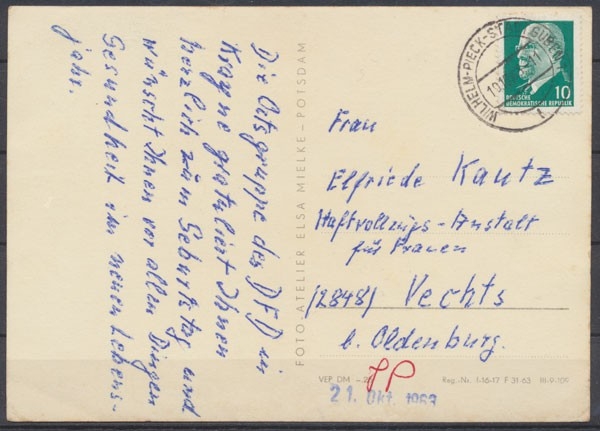 Die Ortsgruppe des DFD in
Krayne gratuliert Ihnen
herzlich zum Geburtstag und
wünscht Ihnen vor allen Dingen
Gesundheit im neuen Lebens-
jahr.
FOTO ATELIER ELSA MIELKE – POTSDAM
WILHELM-PIECK-STADT GUBEN
10
DEUTSCHE
DEMOKRATISCHE REPUBLIK
Frau
Elfriede Kautz
Haftvollzugs-Anstalt
für Frauen
(2848) Vechts
b. Oldenburg.
VEB DM
Reg.-Nr. 1-16-17 F 31-63
JP
21. Okt. 1963